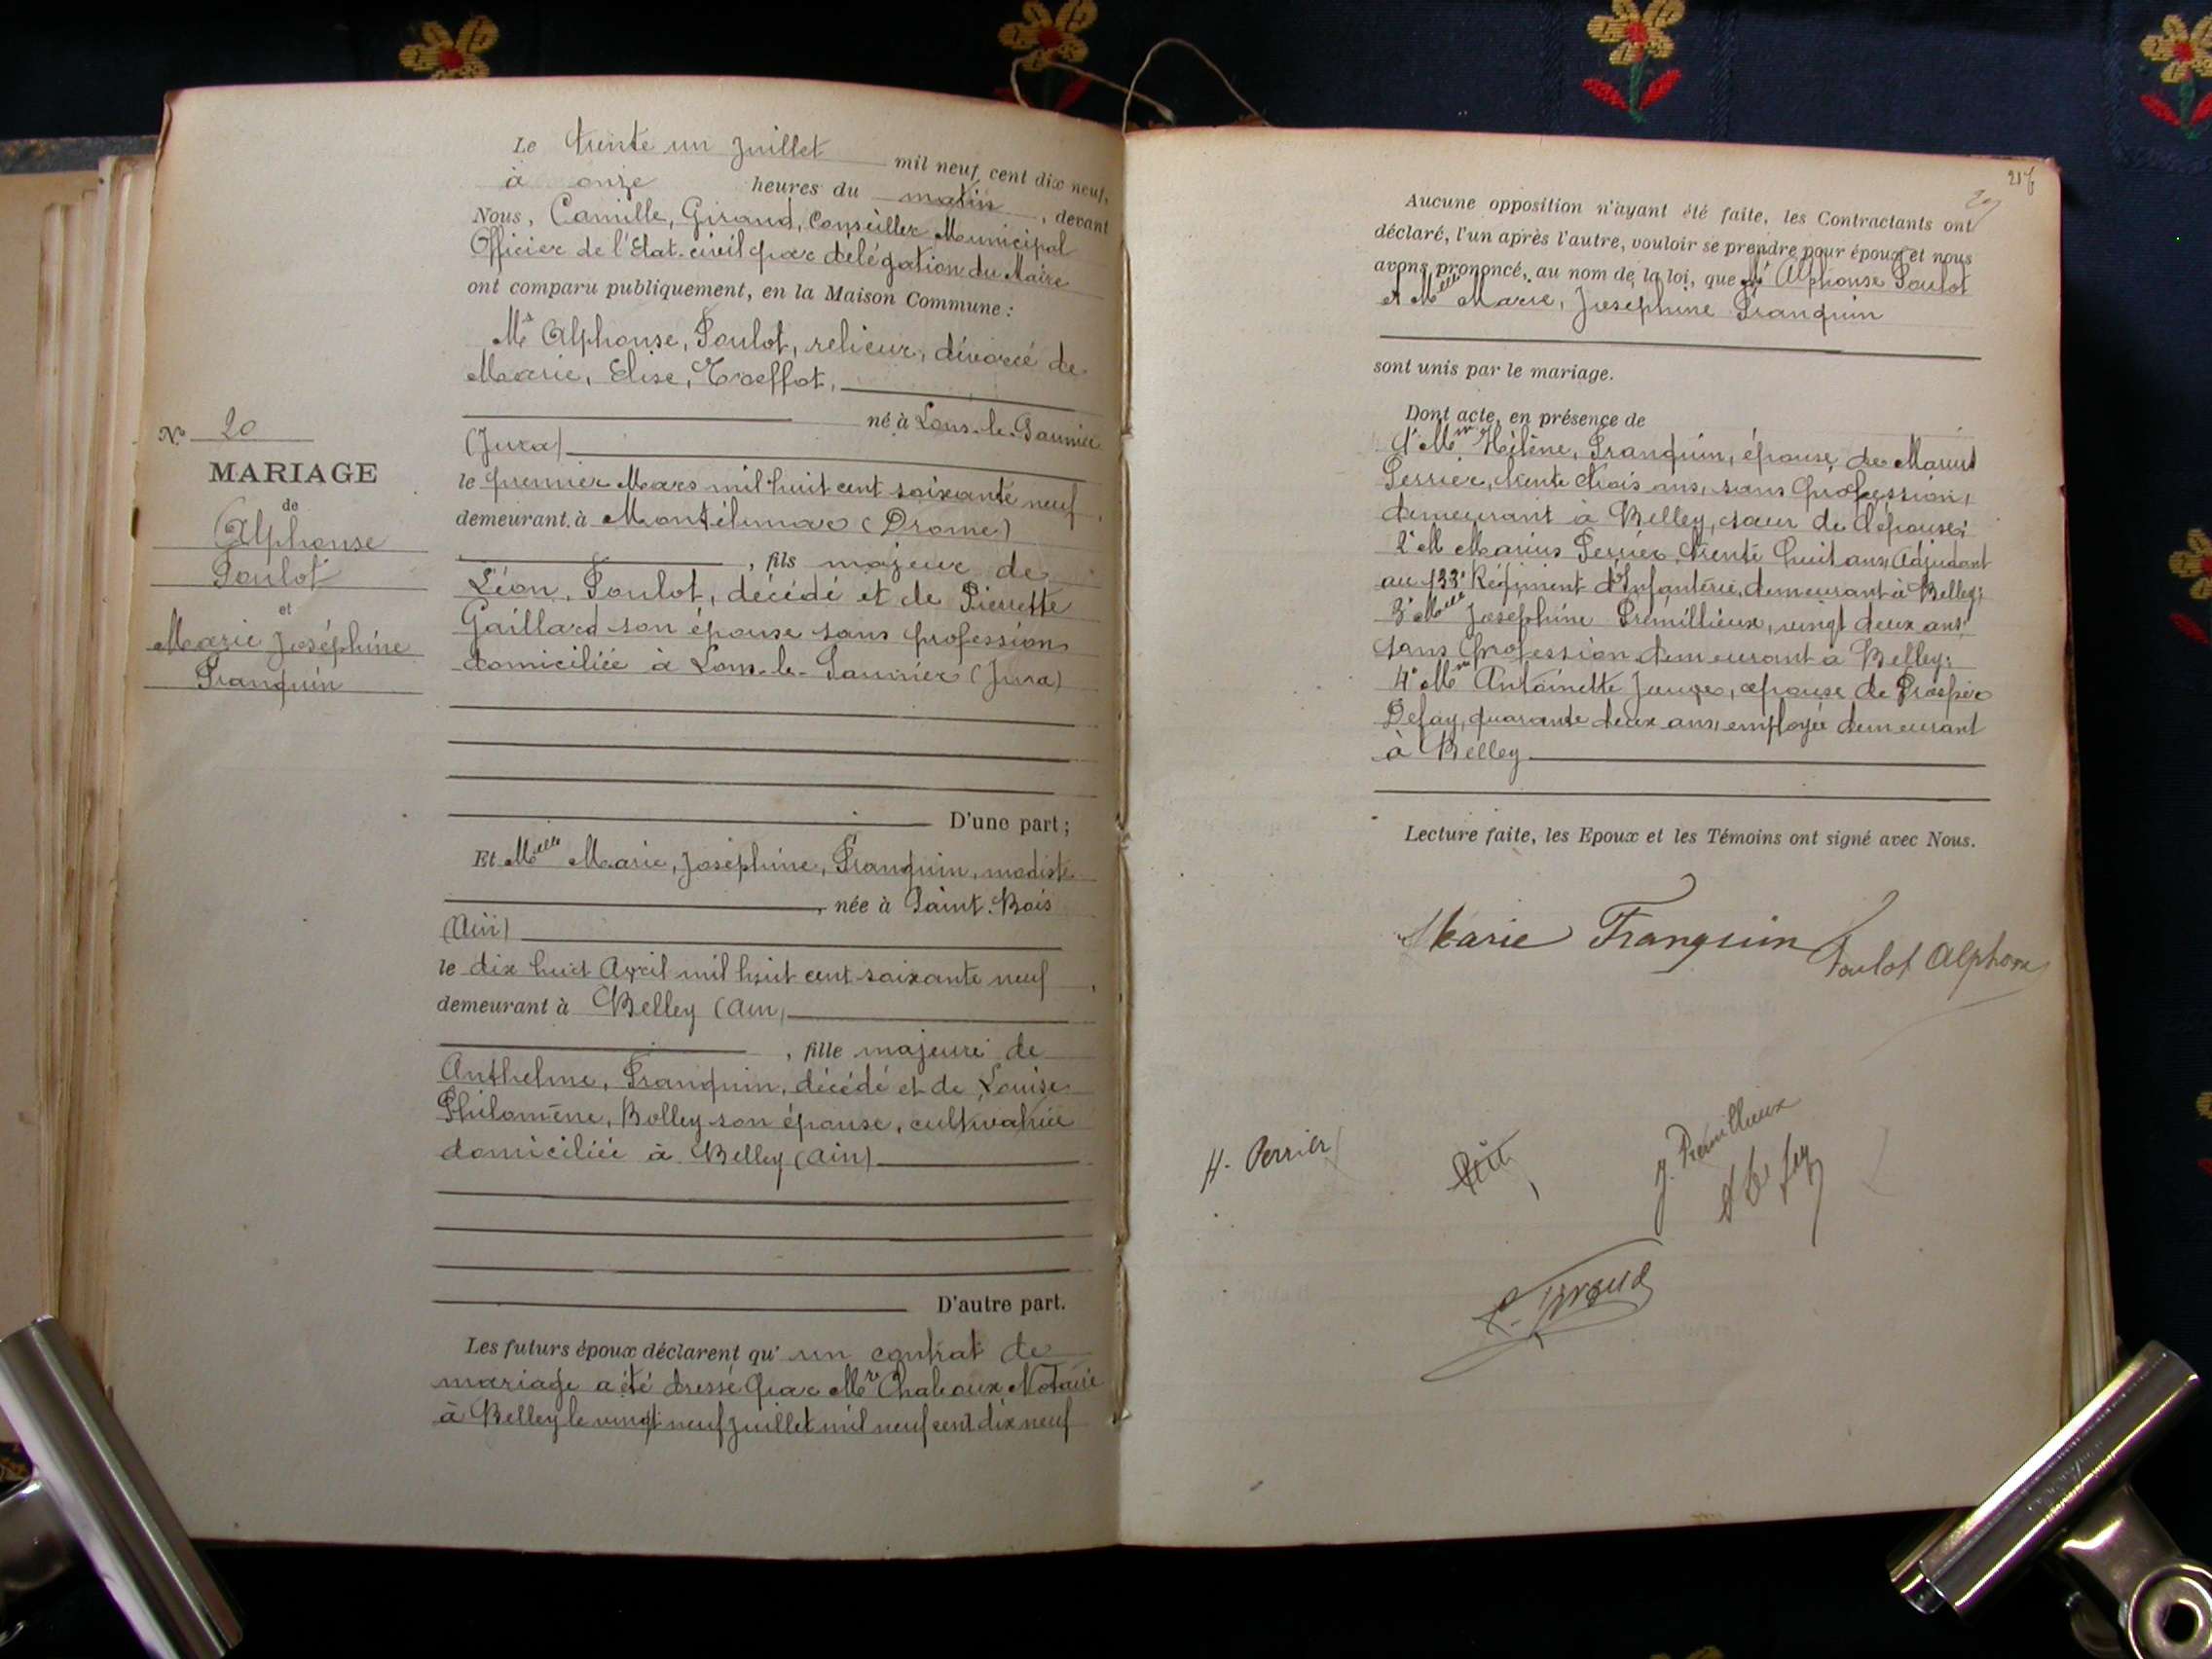 Le trente un Juillet mil neuf cent dix neuf,
à onze heures du matin, devant
Nous, Camille, Giraud, Conseiller Municipal
Officier de l'Etat-civil par délégation du Maire
ont comparu publiquement, en la Maison Commune :
Mr Alphonse, Poulot, relieur, divorcé de
Marie, Elise,
né à Lons-le-Saunier
(Jura)
le premier Mars mil huit cent soixante neuf,
demeurant à Montélimar (Drome)
, fils majeur de
Léon, Poulot, décédé et de Pierrette
Gaillard son épouse sans profession
domiciliée à Lons-le-Saunier (Jura)
D'une part ;
Et Melle Marie, Joséphine, Franquin, modiste
, née à Saint-Bois
(Ain)
le dix huit Avril mil huit cent soixante neuf,
demeurant à Belley (Ain)
, fille majeure de
Anthelme, Franquin, décédé et de Louise
Philomène, Bolley son épouse, cultivatrice
domiciliée à Belley (Ain)
D'autre part.
Les futurs époux déclarent qu'un contrat de
mariage a été dressé par Me Notaire
à Belley le vingt neuf Juillet mil neuf cent dix neuf
N° 20
MARIAGE
de
Alphonse
Poulot
et
Marie Joséphine
Franquin
217
Aucune opposition n'ayant été faite, les Contractants ont
déclaré, l'un après l'autre, vouloir se prendre pour époux et nous
avons prononcé, au nom de la loi, que Mr Alphonse Poulot
et Melle Marie, Joséphine Franquin
sont unis par le mariage.
Dont acte, en présence de
1° Mme Hélène, Franquin, épouse de Marius
Perrier, trente trois ans, sans profession,
demeurant à Belley, sœur de l'épouse;
2° M Marius Perrier, trente huit ans, Adjudant
au 133e Régiment d'Infanterie, demeurant à Belley;
3° Melle Joséphine Prémillieux, vingt deux ans,
sans profession demeurant à Belley;
4° Mme Antoinette épouse de Prosper
Defay, quarante deux ans, employée demeurant
à Belley
Lecture faite, les Epoux et les Témoins ont signé avec Nous.
Marie Franquin Poulot Alphonse
H. Perrier
J. Premillieux
C. Giraud